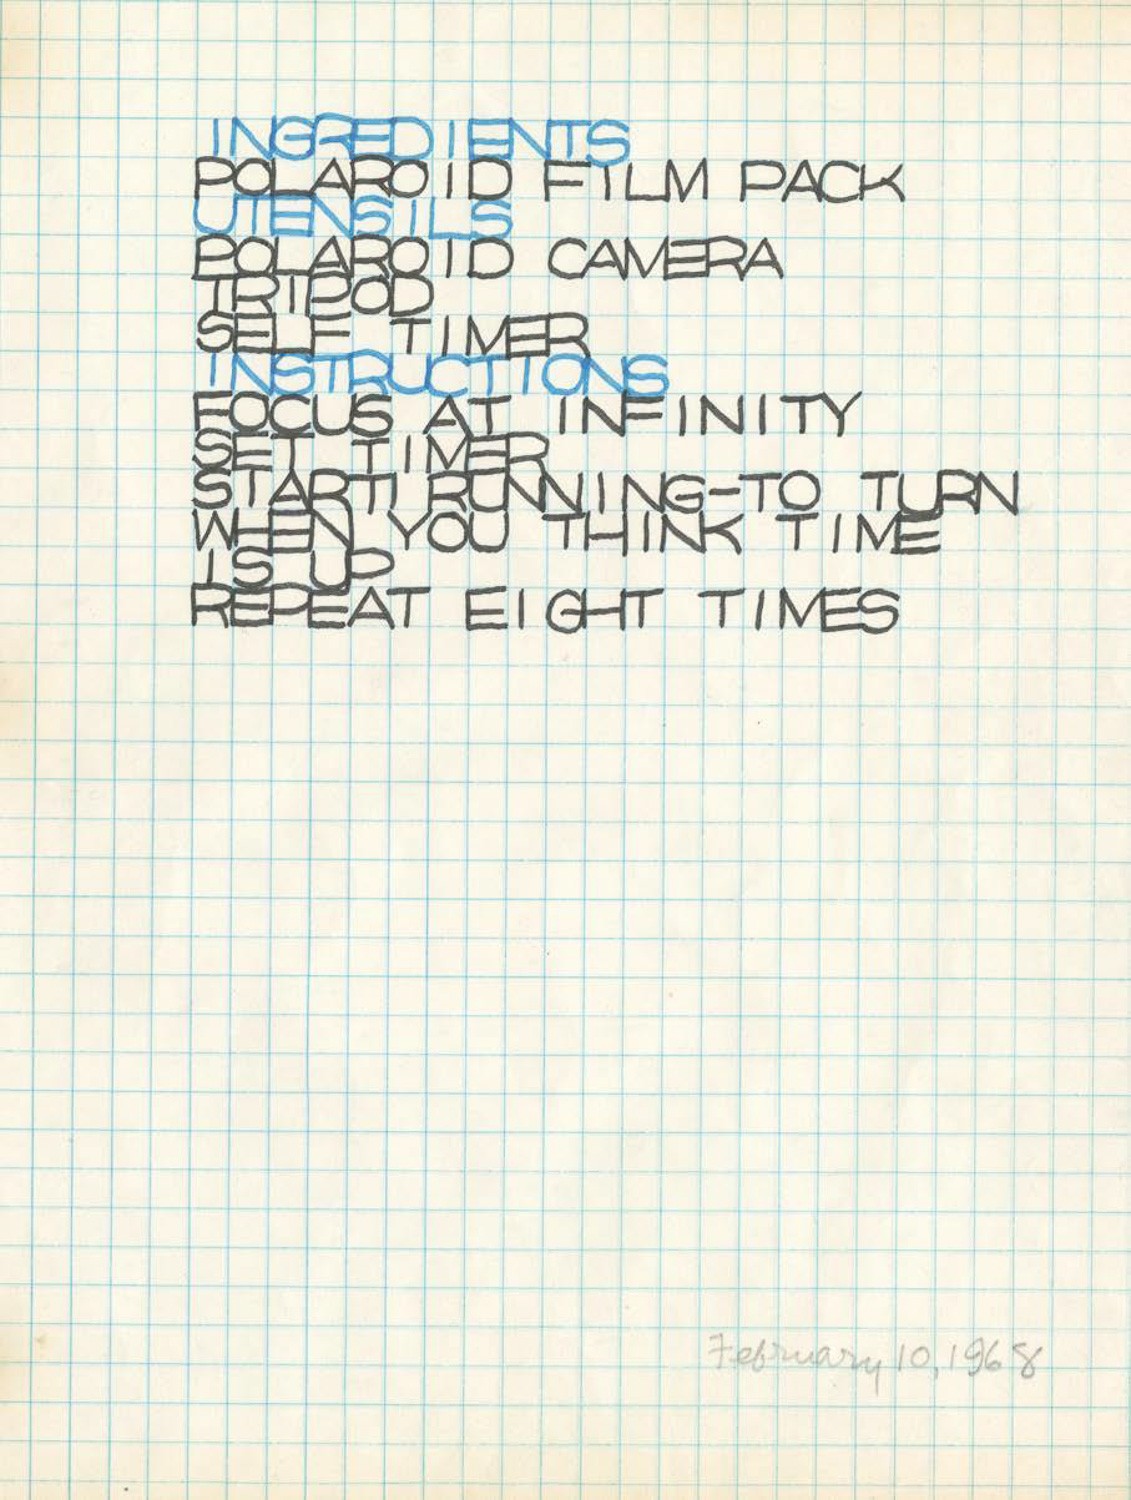 INGREDIENTS
POLAROID FILM PACK
UTENSILS
POLAROID CAMERA
TRIPOD
SELF TIMER
INSTRUCTIONS
FOCUS AT INFINITY
SET TIMER
START RUNNING-TO TURN
WHEN YOU THINK TIME
IS UP
REPEAT EIGHT TIMES
February 10, 1968